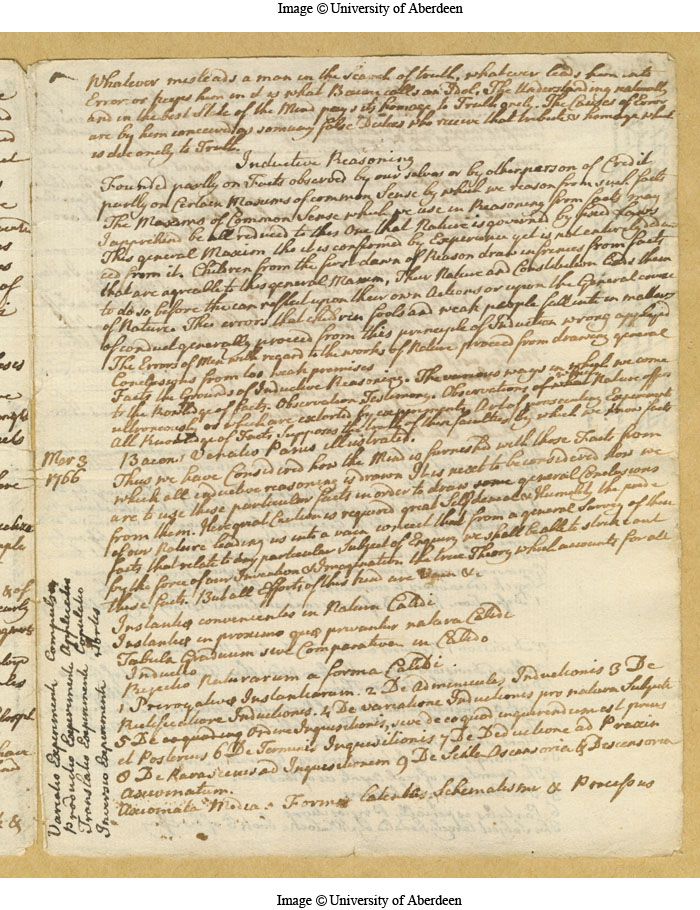 Image © University of Aberdeen
Whatever misleads a man in the Search of truth, whatever leads him into
Error or keeps him in it is what Bacon calls an Idol. The Understanding naturally
and in the best State of the Mind pays its homage to Truth onely. The Causes of Error
are by him conceived as so many false Deities who receive that tribute & homage which
is due onely to Truth.
Inductive Reasoning
Founded partly on Facts observed by our selves or by other person of Credit
partly on Certain Maxims of common Sense by which we reason from such facts
The Maxims of Common Sense which we use in Reasoning from facts may
I apprehend be all reduced to this One that Nature is governed by fixed Laws
This general Maxim tho it is confirmed by Experience yet is not
ed from it. Children from the first dawn of Reason draw inferences from facts
that are agreable to this general Maxim, Their Nature and Constitution leads them
to do so before the can reflect upon their own Actions or upon the General course
of Nature. The errors that children fools and weak people fall into in matters
of conduct generally proceed from this principle of Induction wrong applied
The Errors of Men with regard to the works of Nature proceed from drawing general
Conclusions from too weak premises
Facts the Grounds of Inductive Reasoning. The various ways in which we come
to the Knowledge of facts. Observation Testimony. Observations of what Nature offers
ultroneously or which are extorted by experiments. Art of prosecuting Experiments
All Knowledge of Facts supposes the truth of those faculties by which we know facts
Mar 3
1766
Bacons Venatio Panis illustrated.
Thus we have Considered how the Mind is furnished with those Facts from
which all inductive reasoning is drawn It is next to be considered how we
are to use those particular facts in order to draw some general Conclusions
from them. Here great Caution is required great Self denial & Humility the pride
of our Nature leading us into a vain conceit that from a general Survey of those
facts that relate to any particular Subject of Enquiry we shall be able to strike out
by the force of our Invention & Imagination the true Theory which accounts for all
these facts. But all Efforts of this kind are vain &c
Instantiæ convenientes in Natura Calidi
Instantiæ in proximo quæ privantur natura Calidi
Tabula Graduum sive Comparativæ in Calido
Inductio
Rejectio Naturarum a forma Calidi
1 Prerogativæ Instantiarum. 2 De Adminiculis Inductionis 3 De
Rectificatione Inductionis. 4 De variatione Inductionis pro natura Subjecti
5 De Inquisitionis, sive de eo quod inquirendum est prius
et Posterius 6 De Terminis Inquisitionis 7 De Deductione ad Praxin
8 De Parasceuis ad Inquisitionem 9 De Scala Ascensoria & Descensoria
axiomatum.
Axiomata Media. Formæ latentes Schematismi & Processus
Variatio Experimenti Compulsio
Productio Experimenti Applicatio
Translatio Experimenti Copulatio
Inversio Experimenti Sortes
Image © University of Aberdeen